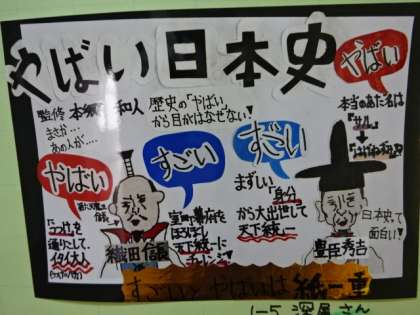 やばい日本史
やばい
監修 本郷和人
歴史の「やばい」
から目がはなせない
まさか…
あの人が…
本当のあだ名は
『サル』
+
『はげねずみ』
やばい
すごい
すごい
まずしい「身分」
から大出世して
天下統一
室町幕府を
ほろぼし
天下統一に
織田信長
豊臣秀吉
日本史で
面白い
イタイ大人
すごいとやばいは紙一重
1-5 深尾さん